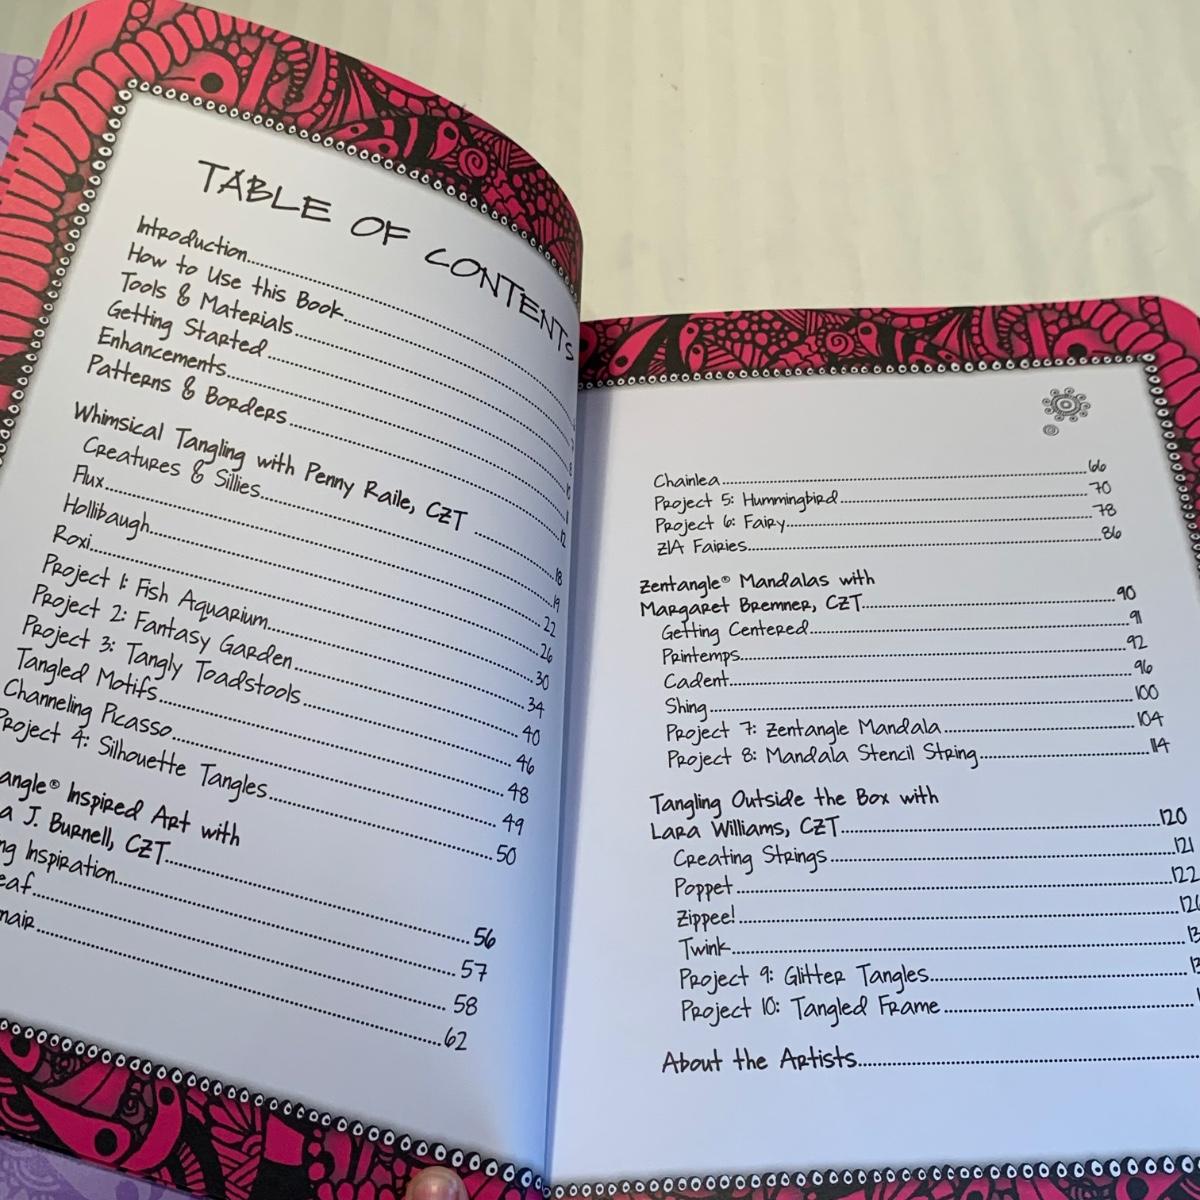 TABLE OF CONTENTS
Introduction
How to Use this Book
Tools & Materials
Getting Started
Enhancements
Patterns & Borders 12
Whimsical Tangling with Penny Raile, CZT 18
Creatures & Sillies 19
Flux 22
Hollibaugh 26
Roxi 30
Project 1: Fish Aquarium 34
Project 2: Fantasy Garden 40
Project 3: Tangly Toadstools 46
Tangled Motifs 48
Channeling Picasso 49
Project 4: Silhouette Tangles 50
angle® Inspired Art with
a J. Burnell, CZT 56
ng Inspiration 57
eaf 58
nair 62
Chainlea 66
Project 5: Hummingbird 70
Project 6: Fairy 78
ZIA Fairies 86
Zentangle® Mandalas with
Margaret Bremner, CZT 90
Getting Centered 91
Printemps 92
Cadent 96
Shing 100
Project 7: Zentangle Mandala 104
Project 8: Mandala Stencil String 114
Tangling Outside the Box with
Lara Williams, CZT 120
Creating Strings 121
Poppet 122
Zippee! 12
Twink 13
Project 9: Glitter Tangles 13
Project 10: Tangled Frame 1
About the Artists